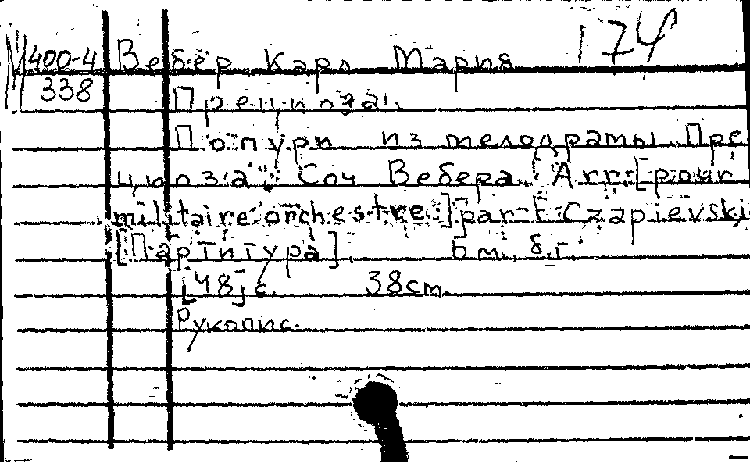 М400-4 Вебер Карл Мария 174
338 Прециоза.
Попури из мелодрамы "Пре
циоза". Соч Вебера. Arr. [pour
militaire orchestre] par F Czapievski
[Партитура] Б.м., б.г.
[48] с. 38 cm.
Рукопис.